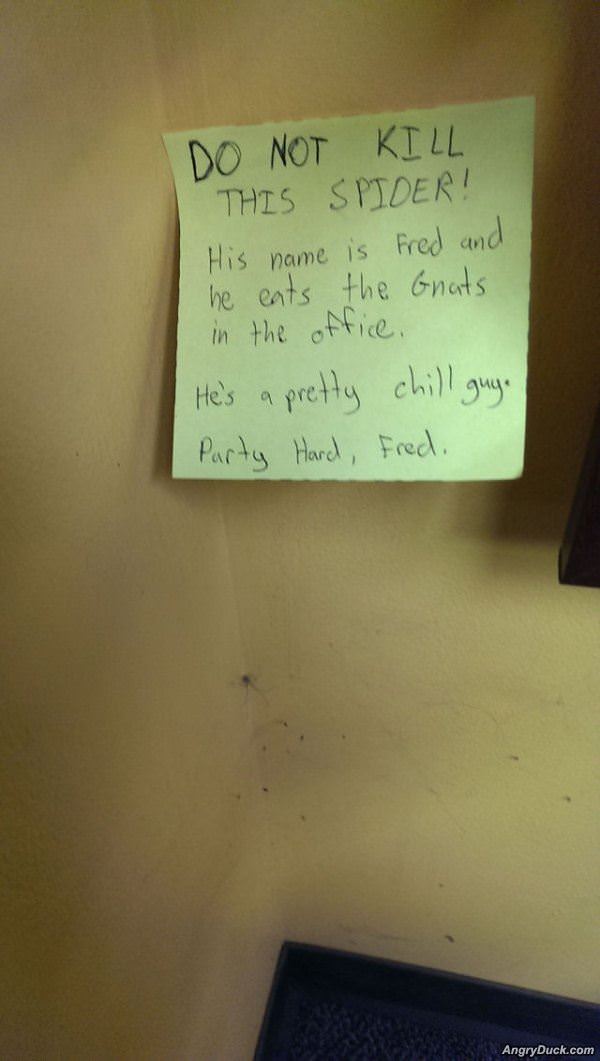 DO NOT KILL
THIS SPIDER!
His name is Fred and
he eats the Gnats
in the office.
He's a pretty chill guy.
Party Hard, Fred.
AngryDuck.com